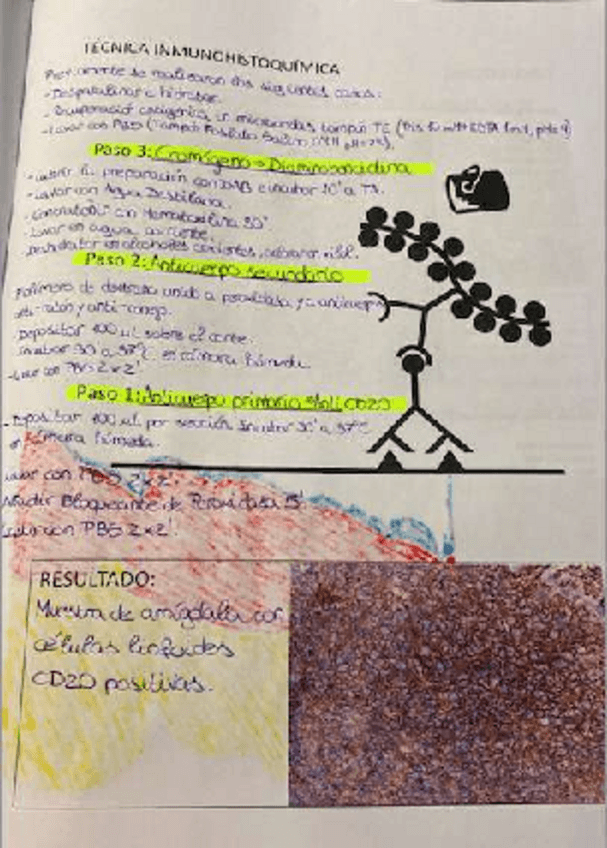 TÉCNICA INMUNOHISTOQUÍMICA
Previamente se realizaron los siguientes pasos:
- Desparafinar e hidratar.
- Recuperación antigénica en microondas tampón TE (
- Lavar con PBS (Tampón Fosfato Salino
Paso 3: Cromógeno → Diaminobencidina
- Cubrir la preparación con DAB e incubar 10' a TA.
- Lavar con Agua Destilada.
- Contrastar con Hematoxilina 30"
- Lavar en agua corriente.
- Deshidratar en alcoholes crecientes,
Paso 2: Anticuerpo secundario
Polímero de dextrano unido a peroxidasa y a anticuerpo
anti-ratón y anti-conejo.
- Depositar 100 µl sobre el corte.
- Incubar 30' a 37°C en cámara húmeda.
- Lavar con PBS 2x2'
Paso 1: Anticuerpo primario anti CD20
- Depositar 100 µl por sección. Incubar 30' a 37°C
en cámara húmeda.
Lavar con PBS 2x2'.
Añadir Bloqueante de Peroxidasa 15'
Lavar con PBS 2x2'.
RESULTADO:
Muestra de amígdala con
células linfoides
CD20 positivas.